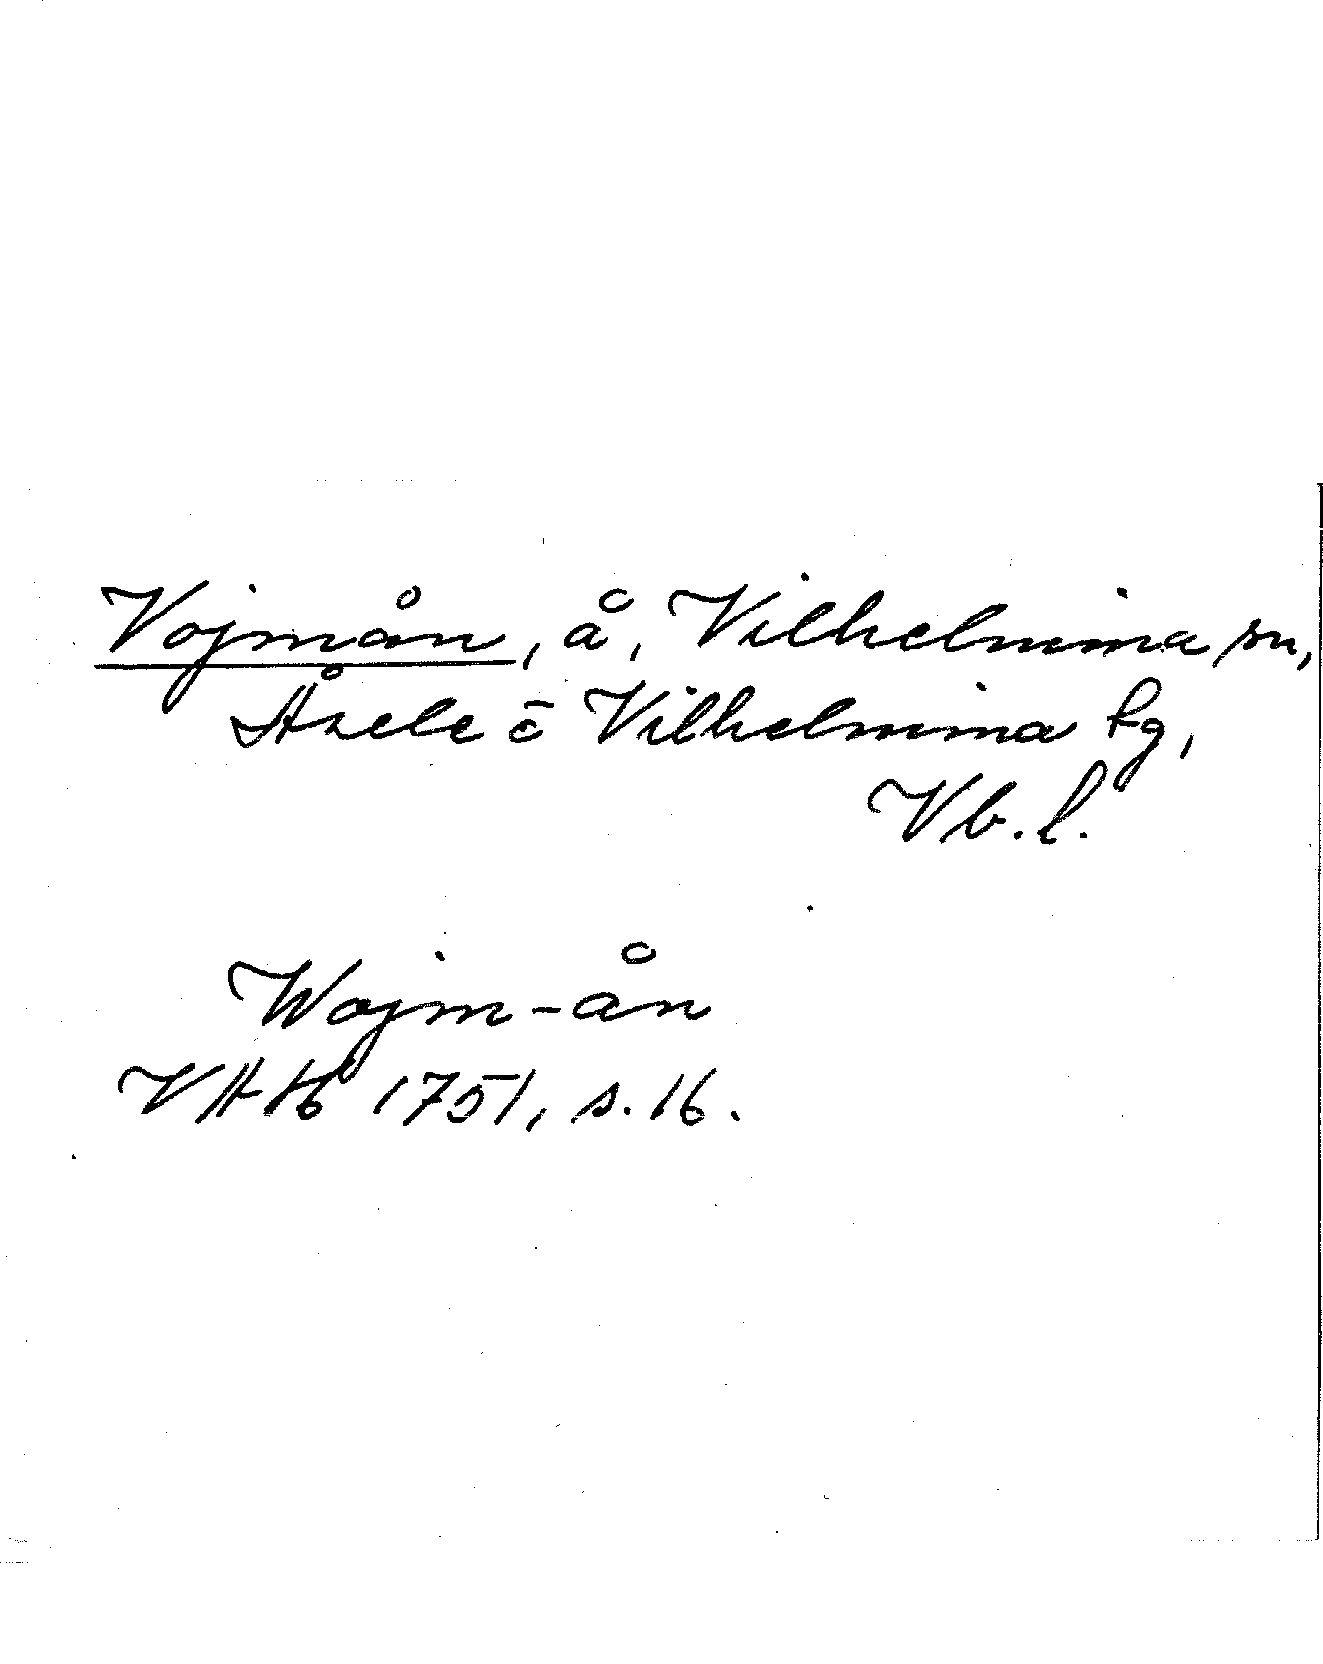 Vojmån, å, Vilhelmina sn,
Åsele o Vilhelmina tg,
Vb. l.
Wojm-ån
VAH 1751, s. 16.